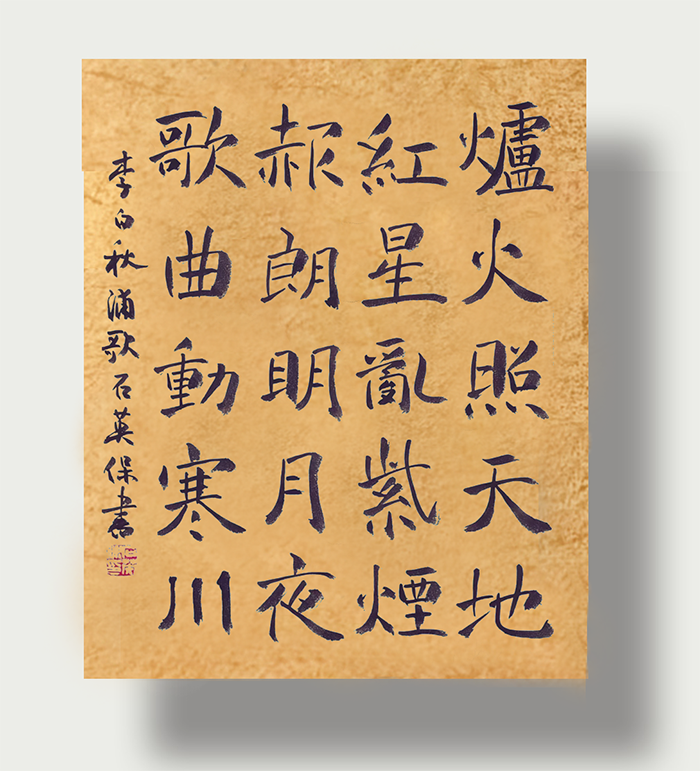 爐火照天地
紅星亂紫煙
赧朗明月夜
歌曲動寒川
李白秋浦歌石英保書